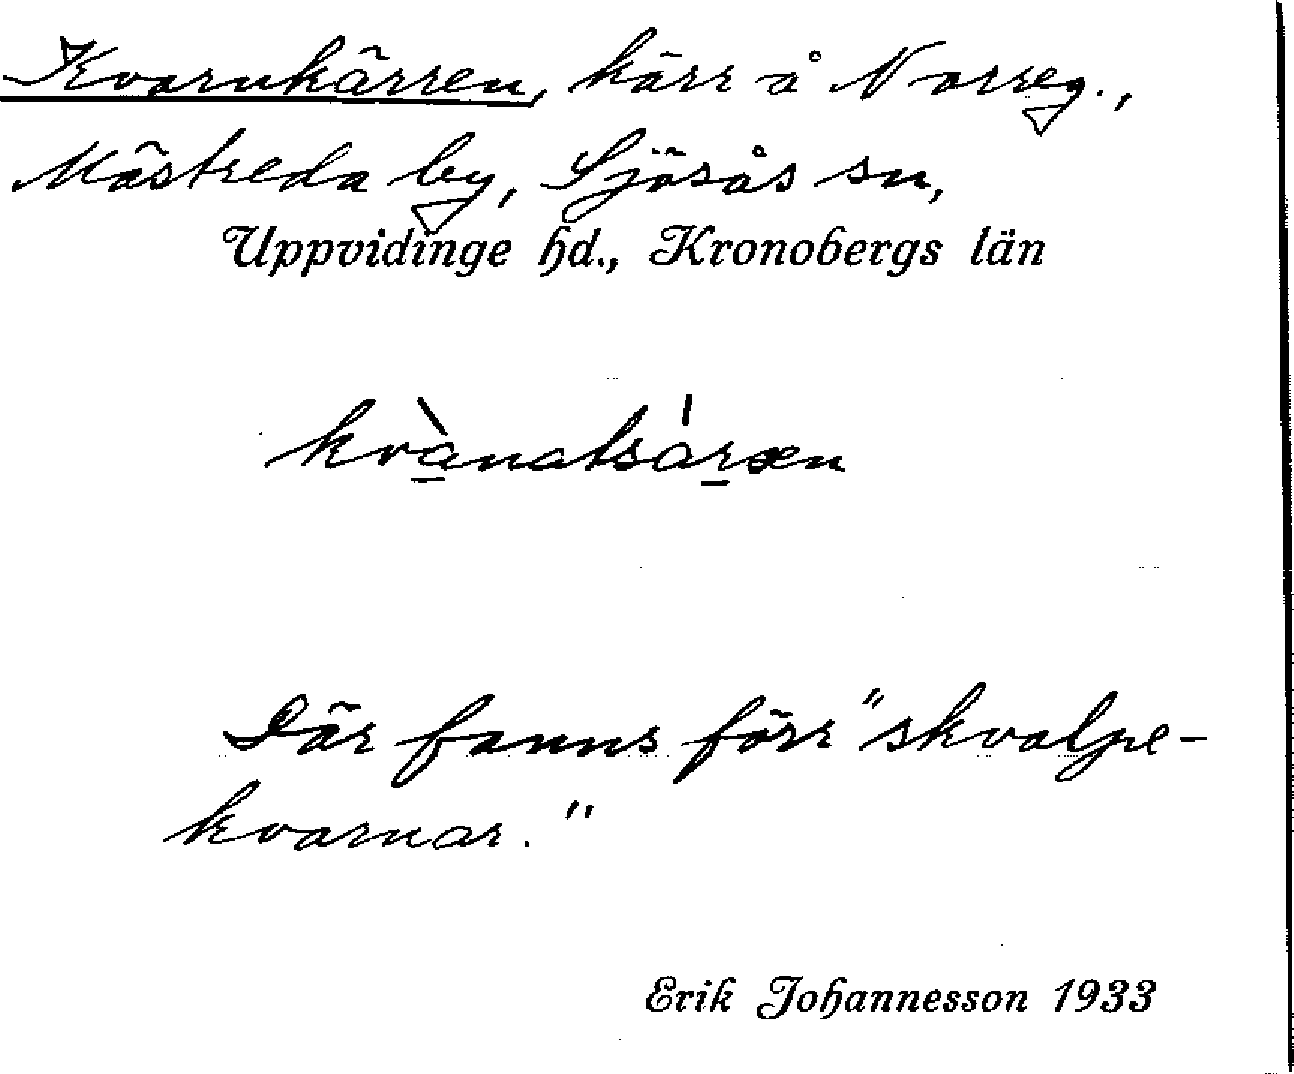 Kvarnkärren, kärr å Norreg.,
Mästreda by, Sjösås sn,
Uppvidinge hd., Kronobergs län
kvànatsáræn
Där fanns förr "skvalpe-
kvarnar."
Erik Johannesson 1933